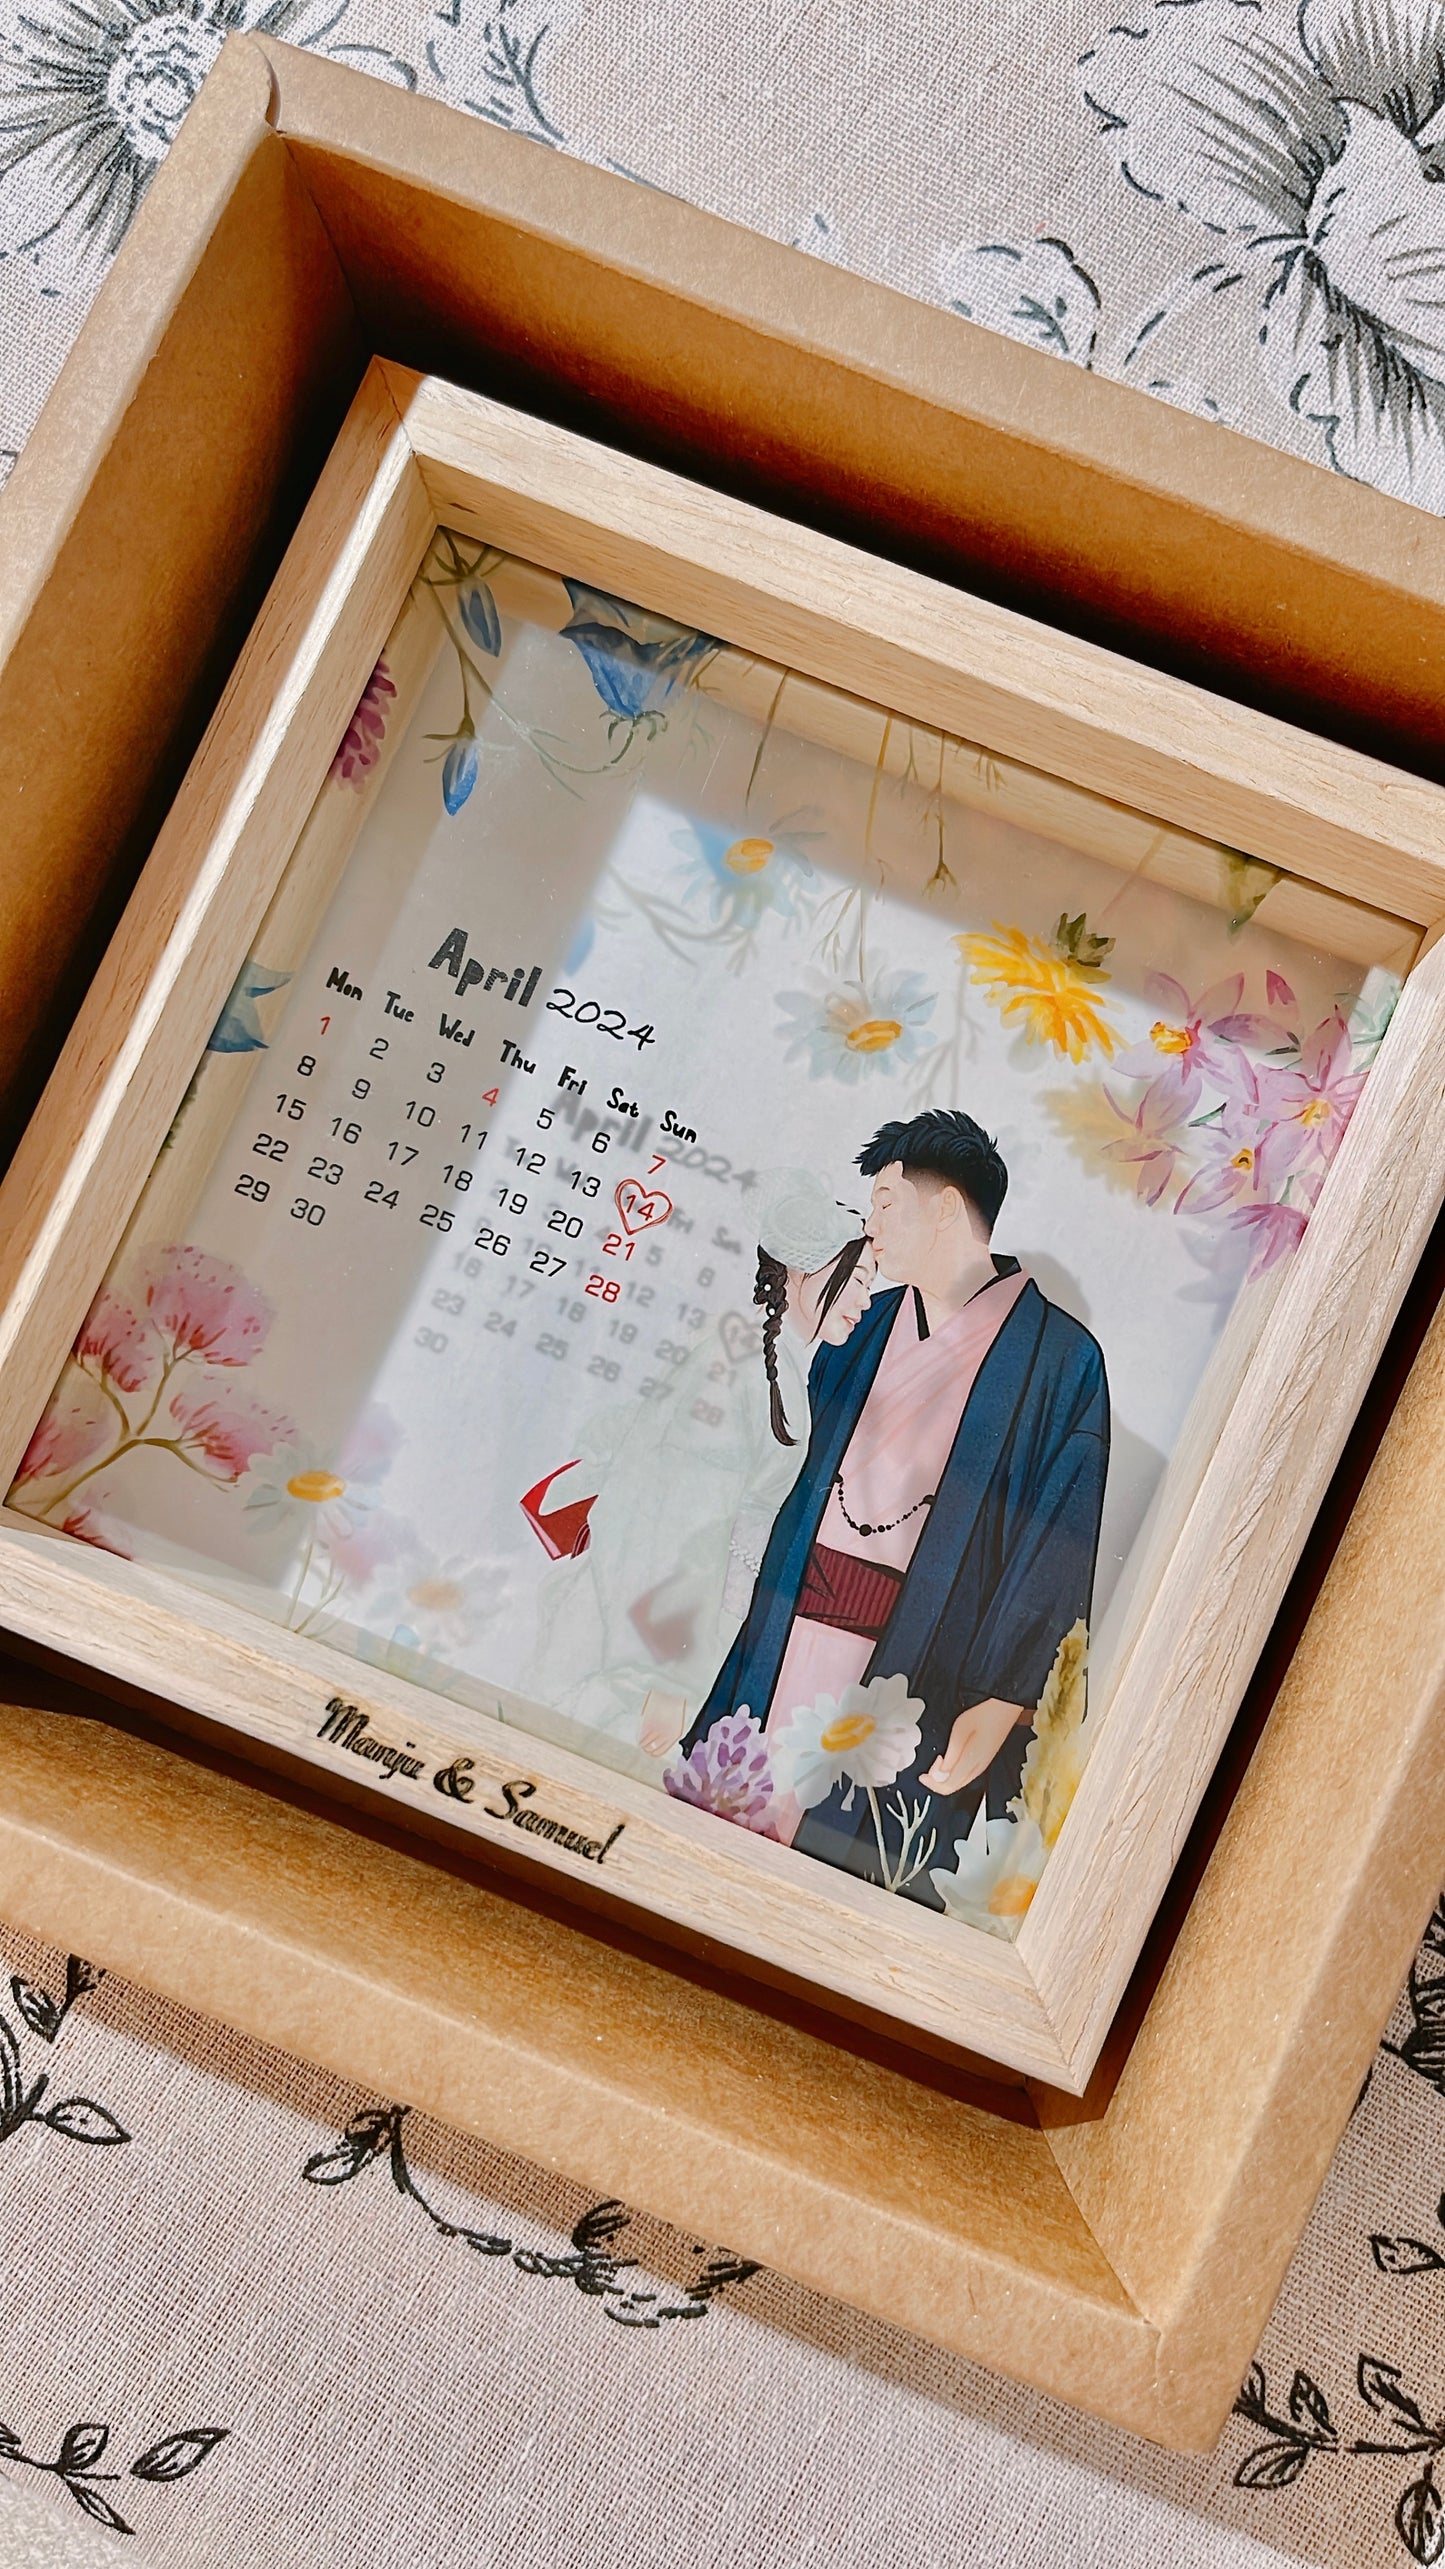 April 2024
Mon Tue Wed Thu Fri Sat Sun
1 2 3 4 5 6 7
8 9 10 11 12 13 14
15 16 17 18 19 20 21
22 23 24 25 26 27 28
29 30
Manju & Samuel